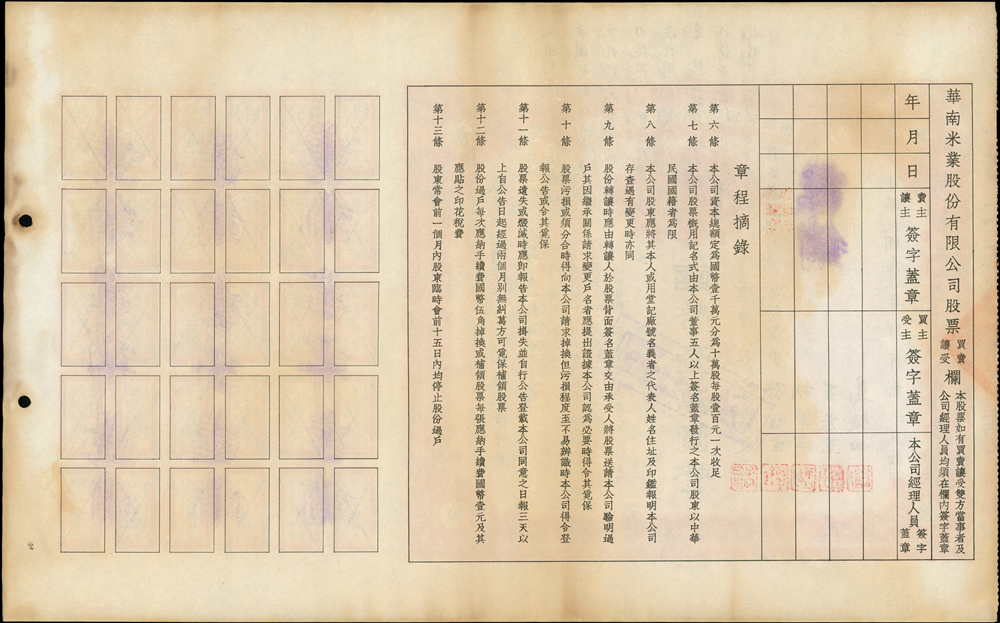 華南米業股份有限公司股票買賣讓受欄
本股票如有買賣讓受雙方當事者及
公司經理人員均須在欄內簽字蓋章
年 月 日
賣主讓主 簽字蓋章
買主受主 簽字蓋章
本公司經理人員 簽字蓋章
章程摘錄
第六條 本公司資本總額定為國幣壹千萬元分為十萬股每股壹百元一次收足
第七條 本公司股票概用記名式由本公司董事五人以上簽名蓋章發行之本公司股東以中華
民國國籍者為限
第八條 本公司股東應將其本人或用堂記廠號名義者之代表人姓名住址及印鑑報明本公司
存查遇有變更時亦同
第九條 股份轉讓時應由轉讓人於股票背面簽名蓋章交由承受人將股票送請本公司驗明過
戶其因繼承關係請求變更戶名者應提出證據本公司認為必要時得令其覓保
第十條 股票污損或須分合時得向本公司請求掉換但污損程度至不易辨識時本公司得令登
報公告或令其覓保
第十一條 股票遺失或燬滅時應即報告本公司掛失並自行公告登載本公司同意之日報三天以
上自公告日起經過兩個月別無糾葛方可覓保補領股票
第十二條 股份過戶每次應納手續費國幣伍角掉換或補領股票每張應納手續費國幣壹元及其
應貼之印花稅費
第十三條 股東常會前一個月內股東臨時會前十五日內均停止股份過戶